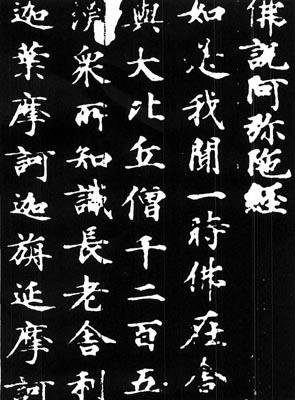 佛說阿弥陁經
如是我聞一時佛在舍
與大比丘僧千二百五
衆所知識長老舍利
迦葉摩訶迦旃延摩訶